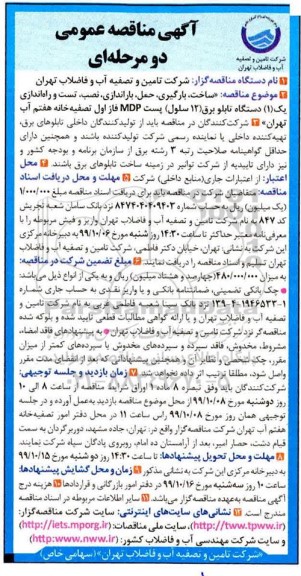 آگهی مناقصه عمومی
دو مرحله‌ای
شرکت تامین و تصفیه
آب و فاضلاب تهران
1 نام دستگاه مناقصه‌گزار: شرکت تامین و تصفیه آب و فاضلاب تهران
2 موضوع مناقصه: «ساخت، بارگیری، حمل، باراندازی، نصب، تست و راه‌اندازی
یک(۱) دستگاه تابلو برق(۱۲ سلول) پست MDP فاز اول تصفیه‌خانه هفتم آب
تهران» 3 شرکت‌کنندگان در مناقصه باید از تولیدکنندگان داخلی تابلوهای برق،
تهیه‌کننده داخلی یا نماینده رسمی شرکت تولیدکننده باشند و همچنین دارای
حداقل گواهینامه صلاحیت رتبه ۳ رشته برق از سازمان برنامه و بودجه کشور و
نیز دارای تاییدیه از شرکت توانیر در زمینه ساخت تابلوهای برق باشند. 4 محل
اعتبار: از اعتبارات جاری(منابع داخلی) شرکت 5 مهلت و محل دریافت اسناد
مناقصه: متقاضیان شرکت در مناقصه باید برای دریافت اسناد مناقصه مبلغ ۱/۰۰۰/۰۰۰
(یک میلیون) ریال به حساب شماره نزد بانک سامان شعبه تجریش
کد ۸۴۷ به نام شرکت تامین و تصفیه آب و فاضلاب تهران واریز و فیش مربوطه را با
معرفی‌نامه کتبی حداکثر تا ساعت ۱۴:۳۰ روز شنبه مورخ ۹۹/۱۰/۰۶ به دبیرخانه مرکزی
این شرکت به نشانی تهران، خیابان دکتر فاطمی، شرکت تامین و تصفیه آب و فاضلاب
تهران تسلیم و اسناد مناقصه را دریافت نمایند. 6 مبلغ تضمین شرکت در مناقصه:
به میزان ۴۸۰/۰۰۰/۰۰۰(چهارصد و هشتاد میلیون) ریال و به یکی از انواع ذیل می‌باشد:
چک بانکی تضمینی، ضمانتنامه بانکی و یا واریز نقدی به حساب جاری شماره
بانک سینا شعبه فاطمی غربی به نام شرکت تامین و
تصفیه آب و فاضلاب تهران و با ارائه گواهی مطالبات قطعی تایید شده و بلوکه شده
مناقصه‌گر نزد شرکت تامین و تصفیه آب و فاضلاب تهران به پیشنهادهای فاقد امضاء،
مشروط، مخدوش، فاقد سپرده و سپرده‌های مخدوش یا سپرده‌های کمتر از میزان
مقرر، چک شخصی و نظایر آن و همچنین پیشنهاداتی که بعد از انقضای مدت مقرر
واصل شود، مطلقا ترتیب اثر داده نخواهد شد. 7 زمان بازدید و جلسه توجیهی:
شرکت‌کنندگان به وفق بند ۸ ماده دعوتنامه شرکت در مناقصه از ساعت ۸ الی ۱۰
روز دوشنبه مورخ ۹۹/۱۰/۰۸ از محل موضوع مناقصه بازدید به‌عمل آورده و در جلسه
توجیهی همان روز مورخ ۹۹/۱۰/۰۸ راس ساعت ۱۱ در محل دفتر امور تصفیه‌خانه
هفتم آب تهران شرکت مناقصه‌گزار واقع در: تهران، جاده مشهد، دوربرگردان به سمت
قیام دشت، حصار امیر، بعد از آرامستان ده امام، روبروی پادگان سپاه شرکت نمایند.
8 مهلت و محل تحویل پیشنهادها: تا ساعت ۱۴:۳۰ روز دو شنبه مورخ ۹۹/۱۰/۱۵
به دبیرخانه مرکزی این شرکت به نشانی مذکور 9 زمان و محل گشایش پیشنهادها:
ساعت ۱۰ روز سه‌شنبه مورخ ۹۹/۱۰/۱۶ در دفتر امور بازرگانی و قراردادها 10 هزینه درج
آگهی مناقصه به‌عهده مناقصه‌گزار می‌باشد 11 سایر اطلاعات مربوطه در اسناد مناقصه
مندرج است. 12 نشانی‌های سایت‌های اینترنتی: سایت شرکت مناقصه‌گزار:
(http://www.tpww.ir)، سایت ملی مناقصات: (http://iets.mporg.ir)
و سایت شرکت مهندسی آب و فاضلاب کشور: (http:www.nww.ir)
«شرکت تامین و تصفیه آب و فاضلاب تهران» (سهامی خاص)